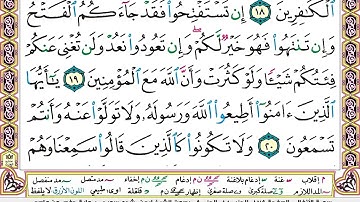 ٱلۡكَٰفِرِينَ ١٨ إِن تَسۡتَفۡتِحُواْ فَقَدۡ جَآءَكُمُ ٱلۡفَتۡحُ
وَإِن تَنتَهُواْ فَهُوَ خَيۡرٞ لَّكُمۡۖ وَإِن تَعُودُواْ نَعُدۡ وَلَن تُغۡنِيَ عَنكُمۡ
فِئَتُكُمۡ شَيۡـٔٗا وَلَوۡ كَثُرَتۡ وَأَنَّ ٱللَّهَ مَعَ ٱلۡمُؤۡمِنِينَ ١٩ يَٰٓأَيُّهَا
ٱلَّذِينَ ءَامَنُوٓاْ أَطِيعُواْ ٱللَّهَ وَرَسُولَهُۥ وَلَا تَوَلَّوۡاْ عَنۡهُ وَأَنتُمۡ
تَسۡمَعُونَ ٢٠ وَلَا تَكُونُواْ كَٱلَّذِينَ قَالُواْ سَمِعۡنَا وَهُمۡ